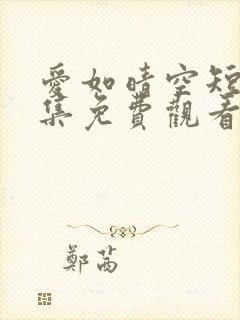 愛如晴空短
集免費觀看
鄭茜